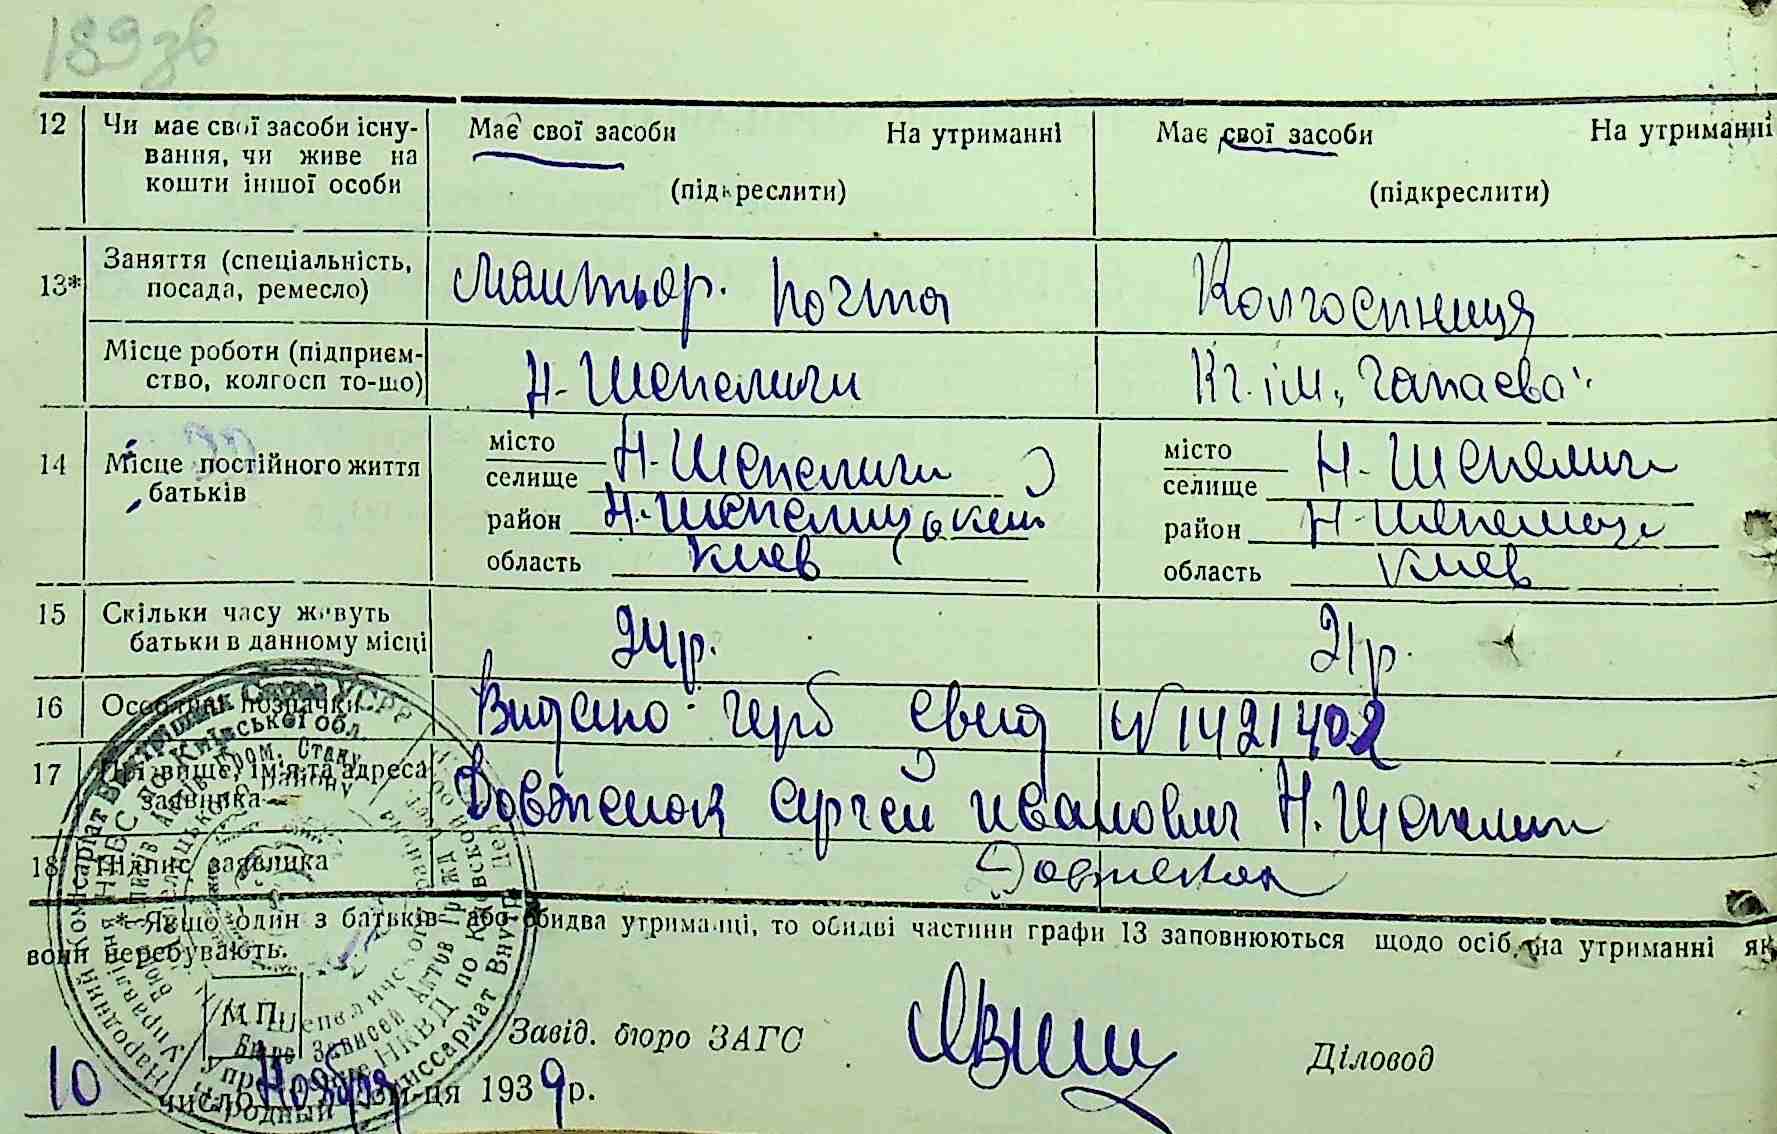 189зв
12 Чи має свої засоби існу-
вання, чи живе на
кошти іншої особи
Має свої засоби На утриманні
(підкреслити)
Має свої засоби На утриманні
(підкреслити)
13* Заняття (спеціальність,
посада, ремесло)
Мантьор. почта
Колгоспниця
Місце роботи (підприєм-
ство, колгосп то-що)
Н-Шепеличи
Кг. ім. „Чапаєва"
14 Місце постійного життя
батьків
місто
селище Н-Шепеличи
район Н-Шепелицький
область Киев
місто
селище Н-Шепеличи
район Н-Шепелиць
область Киев
15 Скільки часу живуть
батьки в данному місці
24р.
21р.
16 Особливі позначки
Видано герб свид № 1421402
17 Прізвище, ім'я та адреса
заявника
Довженок Сергей Иванович Н. Шепелич
18 Підпис заявника
Довженок
* Якщо один з батьків або обидва утриманці, то обидві частини графи 13 заповнюються щодо осіб, на утриманні як
вони перебувають.
М.П.
Завід. бюро ЗАГС
Діловод
10 число Ноября м-ця 1939 р.